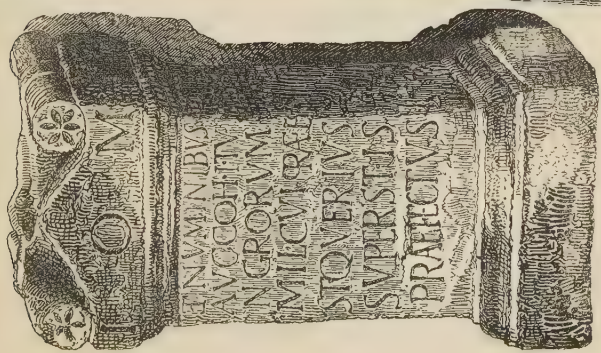 I O M
ET NVMINIBVS
AVG COH I TV
NGRORVM
MIL CVI PRAE
ST Q VERIVS
SVPERSTIS
PRAEFECTVS